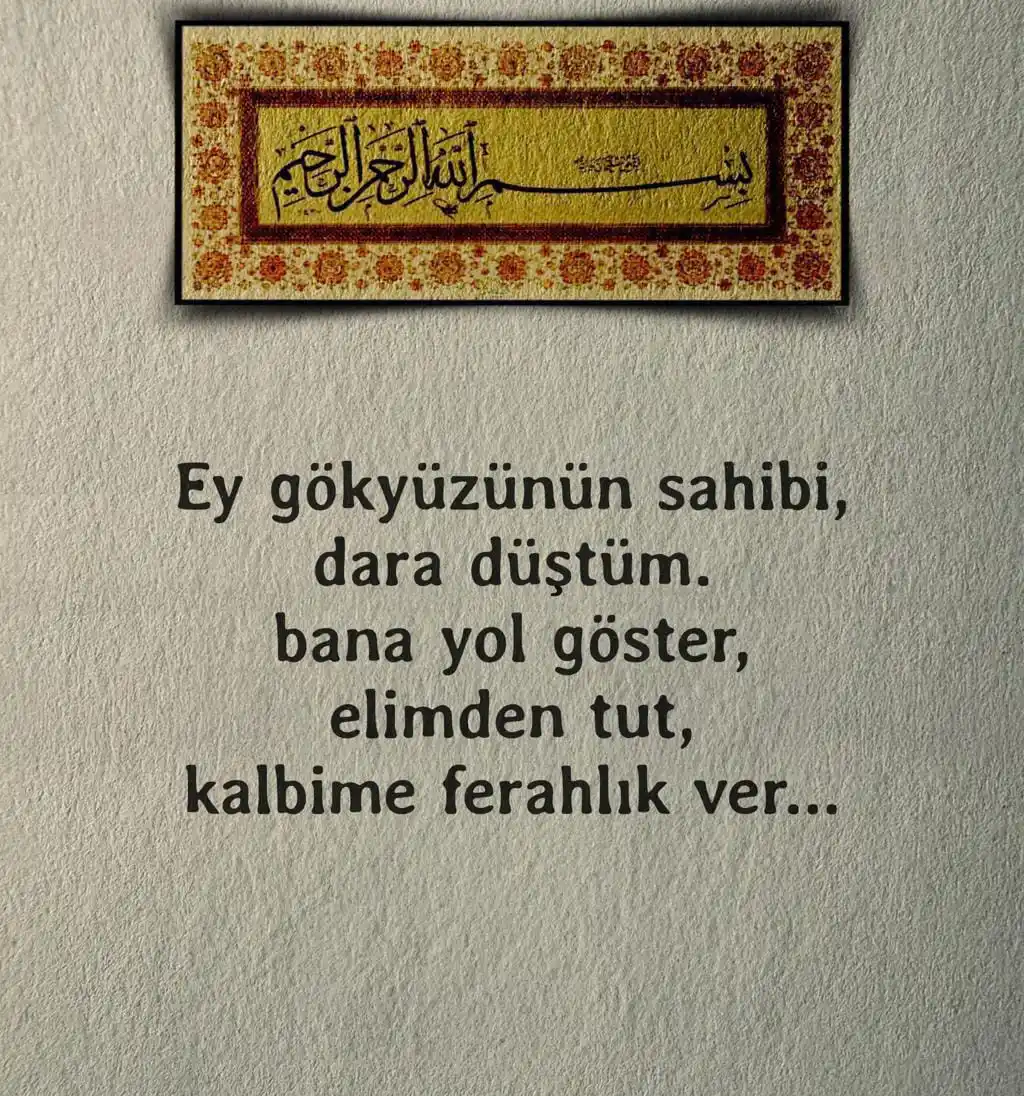 بسم الله الرحمن الرحيم
Ey gökyüzünün sahibi,
dara düştüm.
bana yol göster,
elimden tut,
kalbime ferahlık ver...